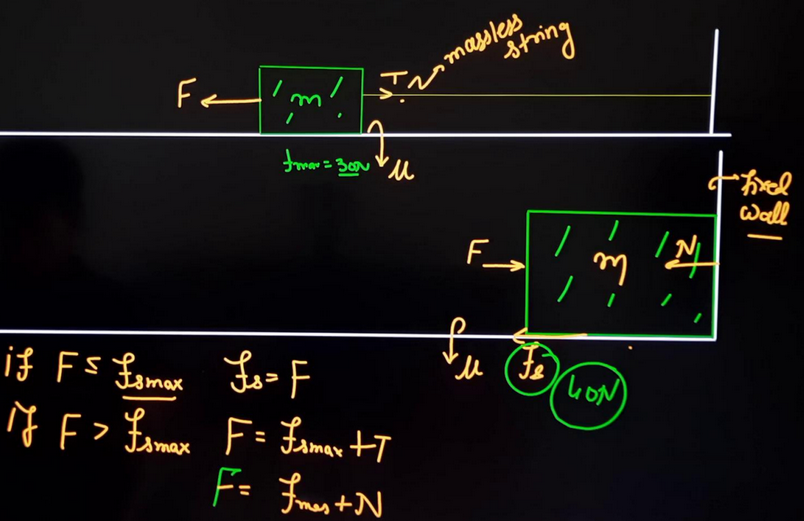 massless
string
F
m
T
fmax = 30N
μ
fixed
wall
F
m
N
μ
fs
40N
if F ≤ fsmax fs = F
if F > fsmax F = fsmax + T
F = fmax + N